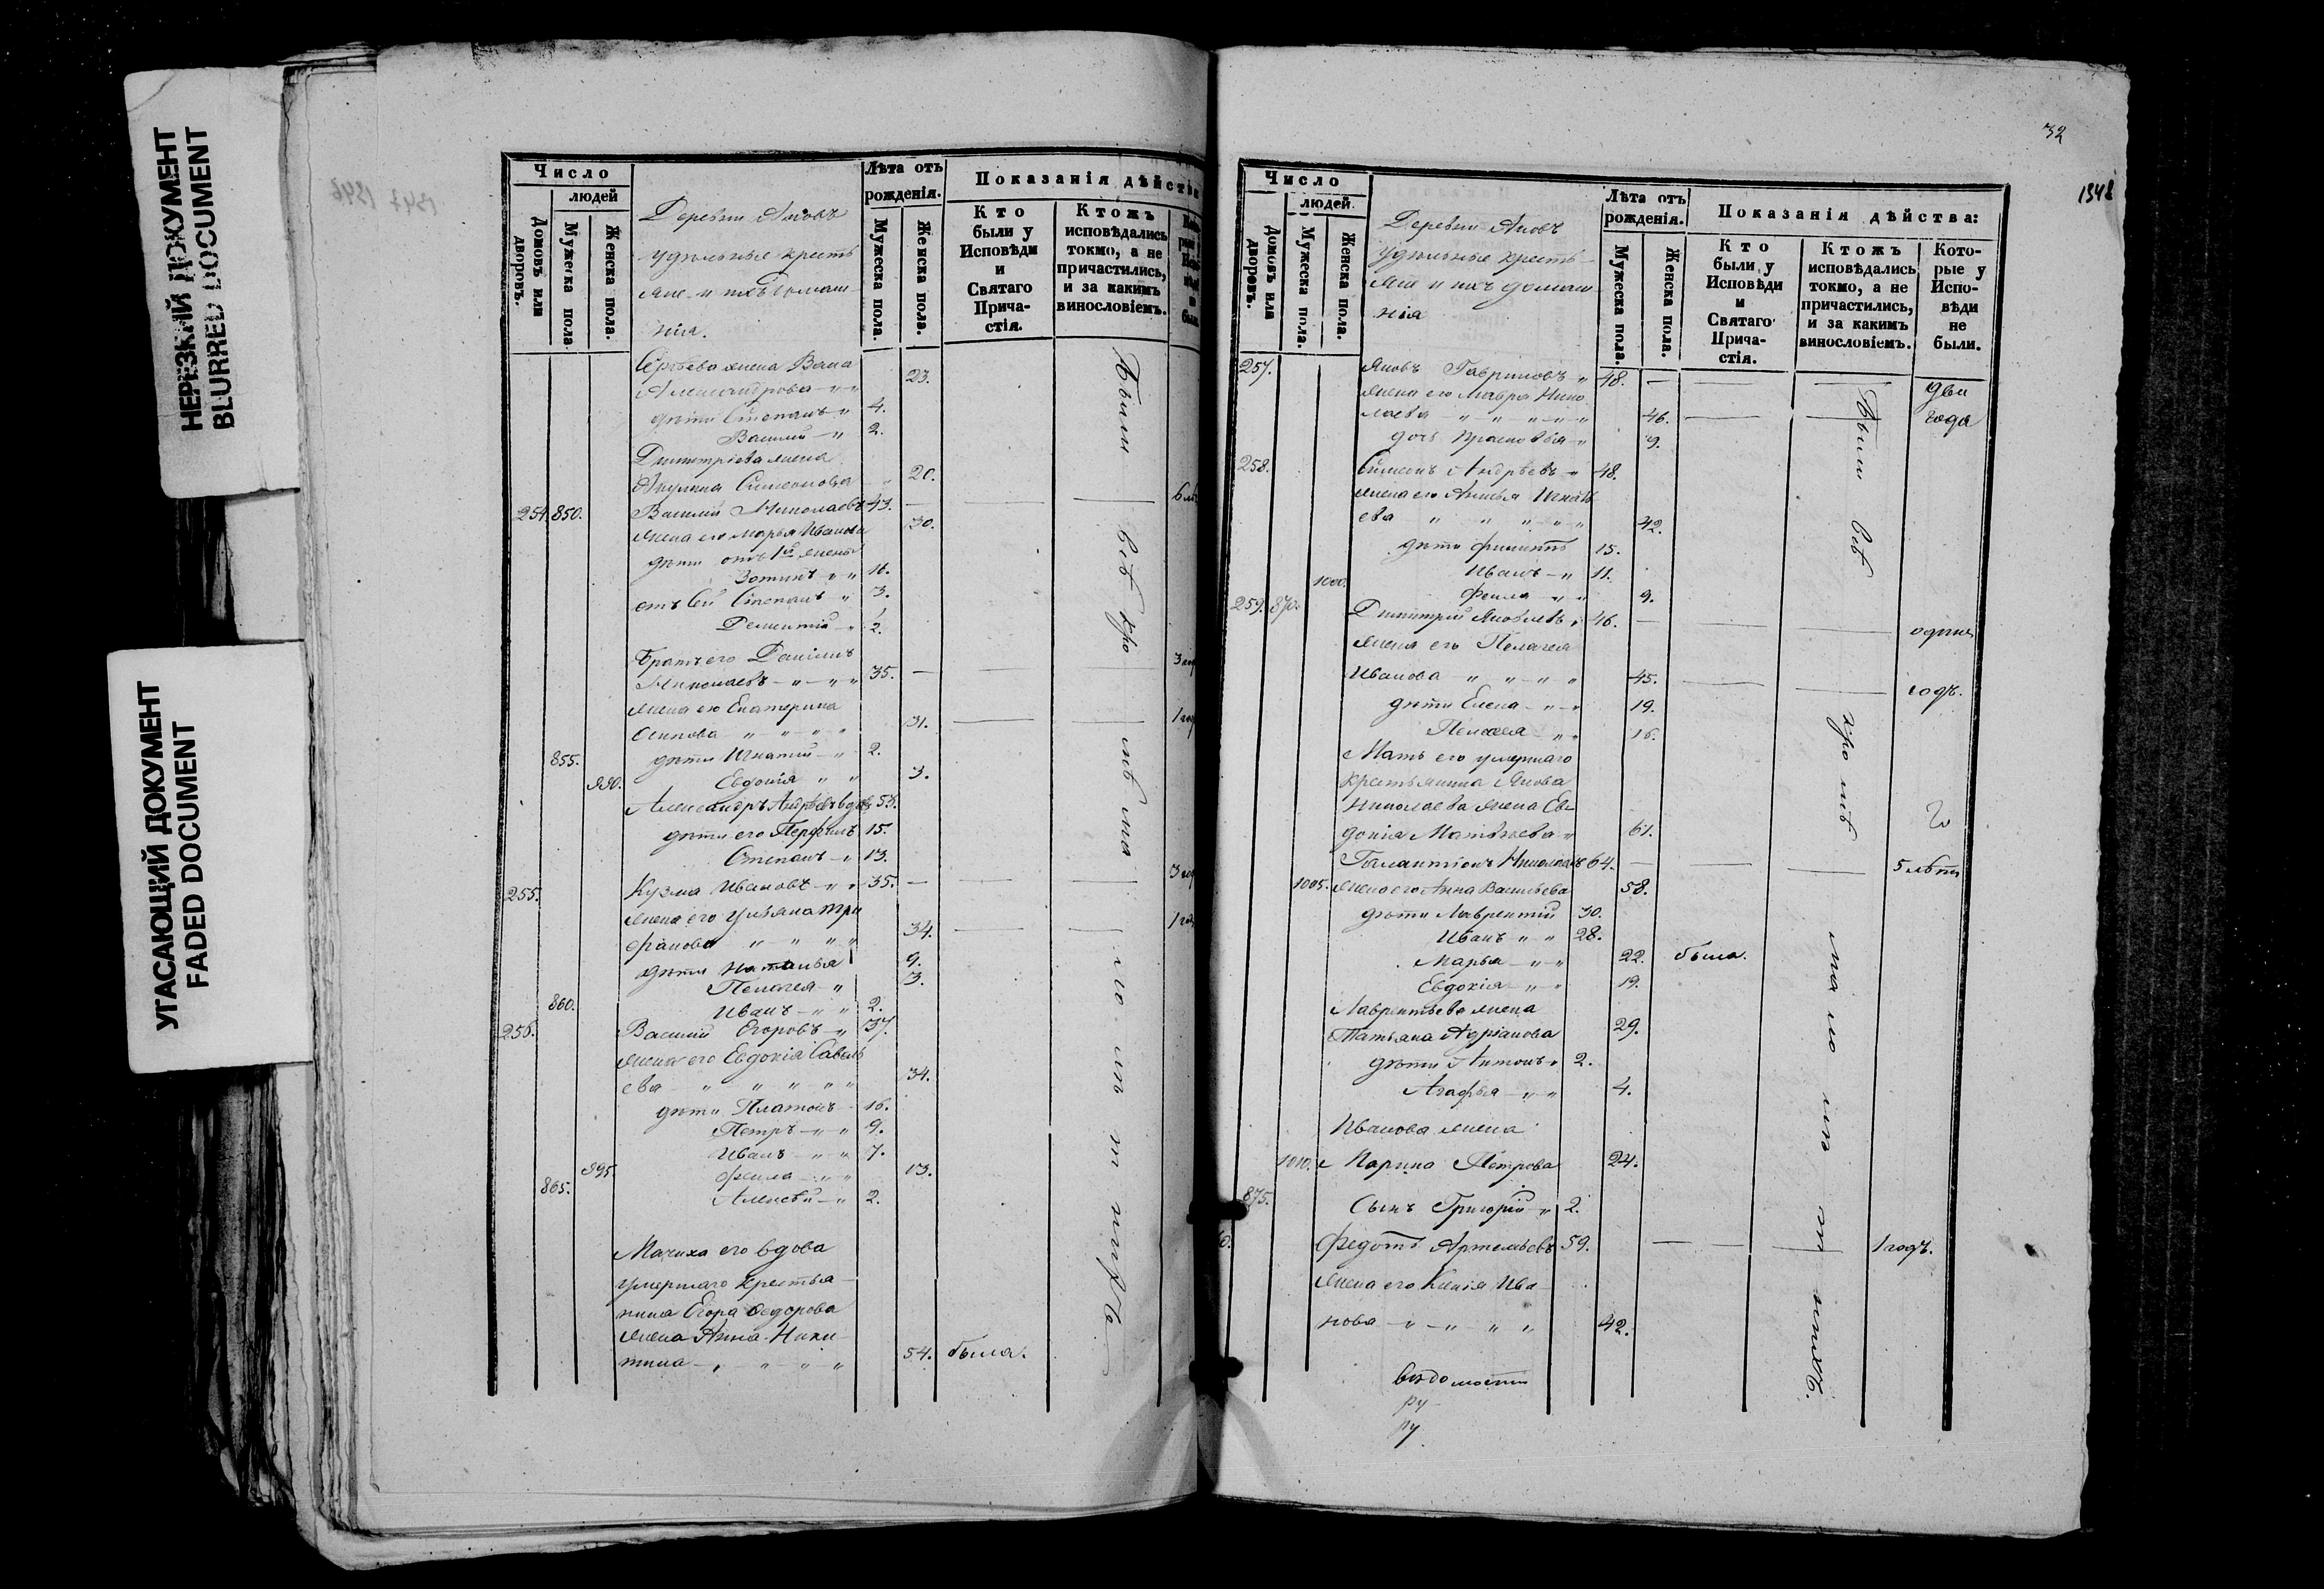 НЕРЕЗКИЙ ДОКУМЕНТ
BLURRED DOCUMENT
УГАСАЮЩИЙ ДОКУМЕНТ
FADED DOCUMENT
Число
людей
Домовъ или дворовъ.
Мужеска пола.
Женска пола.
Деревни
удѣльные кресть
яне и ихъ домаш
нія.
Лѣта отъ рожденія.
Мужеска пола.
Женска пола.
Показанія дѣйств
Кто были у Исповѣди и Святаго Прича-стія.
Ктожъ исповѣдались токмо, а не причастились, и за какимъ винословіемъ.
Сергѣева жена Васса
Александрова 23.
дѣти Степанъ 4.
Василій 2.
Димитріева жена
Акулина Симеонова 20.
254. 850. Василій Николаевъ 43.
жена его Марья Иванова 30.
дѣти отъ 1й жены
Зотикъ 11.
отъ сей Степанъ 3.
Дементій 1/2.
братъ его Даніилъ
Николаевъ 35.
жена его Екатерина
Осипова 31.
855. дѣти Игнатій 2.
990. Евдокія 3.
Александръ Андреевъ вдовъ 53.
дѣти его Перфилъ 15.
Степанъ 13.
255. Кузма Ивановъ 35.
жена его Ульяна Три
фанова 34.
дѣти Наталья 9.
Пелагея 3.
860. Иванъ 2.
256. Василій Егоровъ 37.
жена его Евдокія Савель
ева 34.
дѣти Платонъ 16.
Петръ 9.
Иванъ 7.
995 Фекла 13.
865. Алексѣй 2.
Мачиха его вдова
умершаго крестья
нина Егора Ѳедорова
жена Анна Ники
тина 54. была.
Были всѣ кро мѣ
32
1348
Число
людей.
Домовъ или дворовъ.
Мужеска пола.
Женска пола.
Деревни
удѣльные кресть
яне и ихъ домаш
нія
Лѣта отъ рожденія.
Мужеска пола.
Женска пола.
Показанія дѣйства:
Кто были у Исповѣди и Святаго Прича-стія.
Ктожъ исповѣдались токмо, а не причастились, и за какимъ винословіемъ.
Кото-рые у Испо-вѣди не были.
257. Яковъ Гавриловъ 48. два
жена его Мавра Нико
лаева 46. года
дочь Прасковья 9.
258. Симеонъ Андреевъ 48.
жена его Анисья Игнать
ева 42.
дѣти Филиппъ 15.
Иванъ 11.
1000. Фекла 9.
259. 870. Димитрій Яковлевъ 46. одинъ
жена его Пелагея
Иванова 45. годъ.
дѣти Елена 19.
Пелагея 16.
Мать его умершаго
крестьянина Якова
Николаева жена Ев
докія Матвѣева 61.
Галактіонъ Николаевъ 64. 5 лѣтъ
1005. жена его Анна Васильева 58.
дѣти Лаврентій 30.
Иванъ 28.
Марья 22. была.
Евдокія 19.
Лаврентьева жена
Татьяна Адріанова 29.
дѣти Антонъ 2.
Агафья 4.
Иванова жена
1010. Марина Петрова 24.
875. Сынъ Григорій 2.
Федотъ Артемьевъ 59. 1 годъ.
жена его Ксенія Ива
нова 42.
Были всѣ кро мѣ
вѣдомости
ру
ру